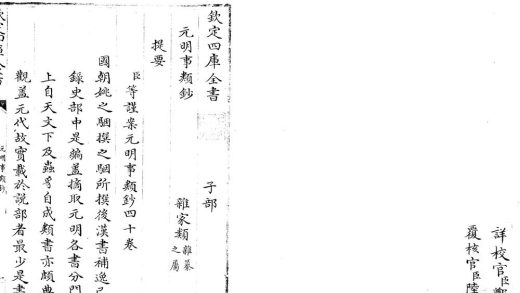 詳校官臣
覆核官臣陸
欽定四庫全書 子部
元明事類鈔 雜家類 雜纂之屬
提要
臣等謹案元明事類鈔四十卷
國朝姚之駰撰之駰所撰後漢書補逸已
錄史部中是編蓋摘取元明各書分門
上自天文下及蟲豸自成類書亦頗典
觀蓋元代故實載於說部者最少是書
元明事類鈔